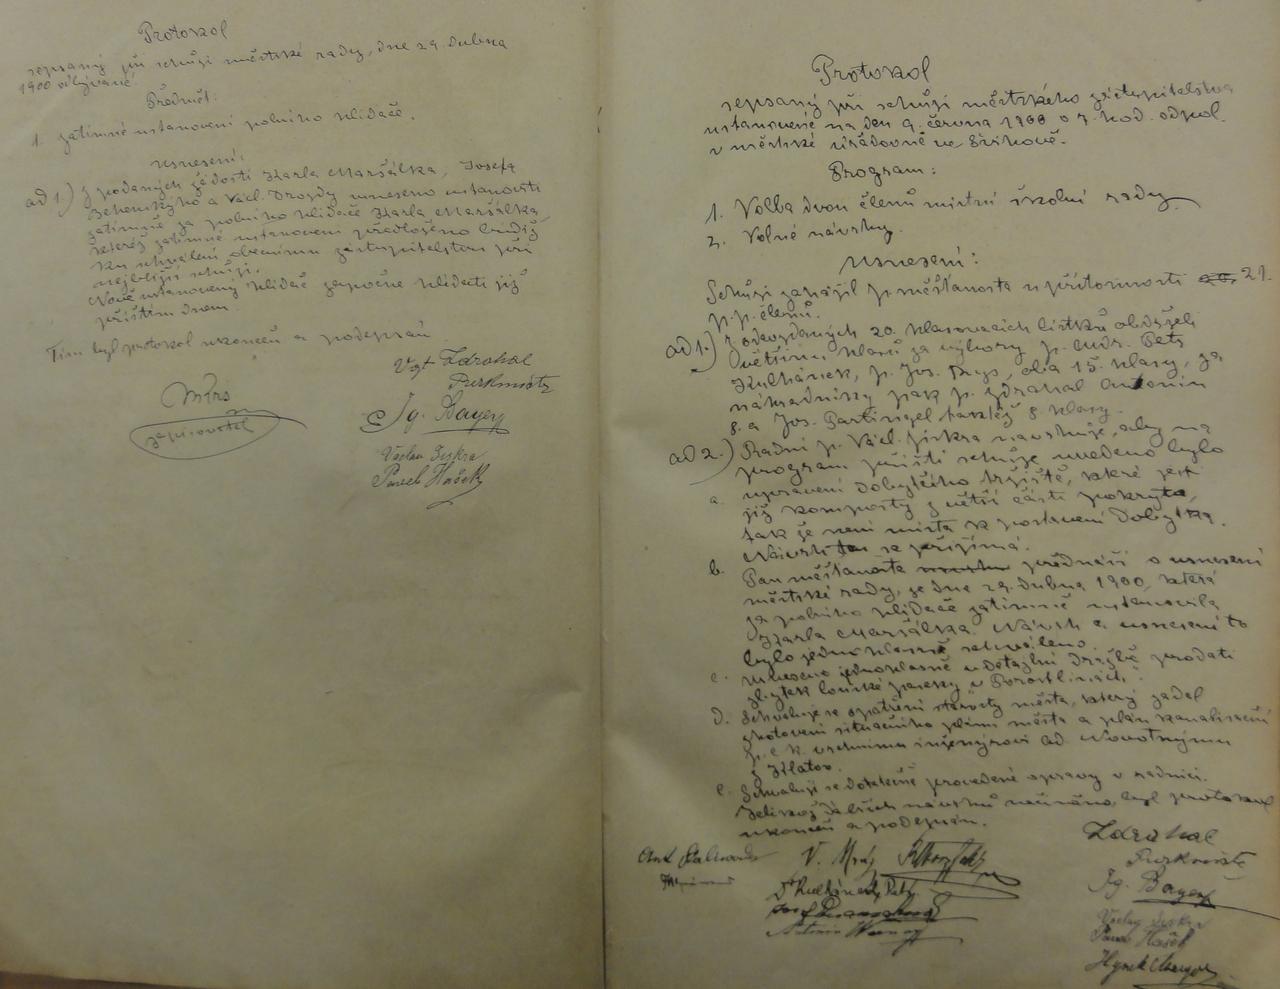 Protokol
sepsaný při schůzi městské rady, dne 29. dubna
1900 odbývané.
Předmět:
1. zatimné ustanovení polního hlídače.
Usnesení:
ad 1.) Z podaných žádostí Karla Maršálka, Josefa
a Václ. Drozdy usneseno ustanoviti
zatimně za polního hlídače Karla Maršálka,
kteréž zatimné ustanovení předloženo budiž
ku schválení obecnímu zastupitelstvu při
nejbližší schůzi.
Nově ustanovený hlídač započne hlídati již
příštím dnem.
Tím byl protokol ukončen a podepsán
Vojt Zdrahal
Purkmistr
Ig. Bayer
Václav Jiskra
Pavel Hašek
zapisovatel
Protokol
sepsaný při schůzi městského zastupitelstva
ustanovené na den 9. června 1900 o 7. hod. odpol.
v městské úřadovně ve
Program:
1. Volba dvou členů místní školní rady.
2. Volné návrhy.
Usnesení:
Schůzi zahájil p. měšťanosta u přítomnosti 21.
p.p. členů.
ad 1.) Z odevzdaných 20. hlasovacích lístků obdrželi
většinu hlasů za výbory p. MUDr. Petr
Kulhánek, p. Jos. oba 15. hlasy, za
náhradníky pak p. Zdrahal Antonín
8. a Jos. taktéž 8. hlasy.
ad 2.) Radní p. Václ. Jiskra navrhuje, aby na
program příští schůze uvedeno bylo
a. upravení dobytčího tržiště, které jest
již komposty z větší části pokryto,
tak že není místa k postavení dobytka.
Návrh ten se přijímá.
b. Pan měšťanosta přednáší o usnesení
městské rady, ze dne 29. dubna 1900, která
za polního hlídače zatimně ustanovila
Karla Maršálka. Návrh a usnesení to
bylo jednohlasně schváleno.
c. Usneseno jednohlasně v detailní dražbě prodati
zbytek loňské paseky v
d. Schvaluje se opatření starosty města, který zadal
zhotovení situačního plánu města a plán kanalisační
p. c. k. vrchnímu inženýrovi ad. Novotnému
z Klatov.
e. Schvalují se dodatečně provedené opravy v radnici.
Jelikož dalších návrhů nečiněno, byl protokol
ukončen a podepsán.
Zdrahal
Purkmistr
Ig. Bayer
Václav Jiskra
Pavel Hašek
Hynek
V. Mráz
Dr Kulhánek Petr
Antonín